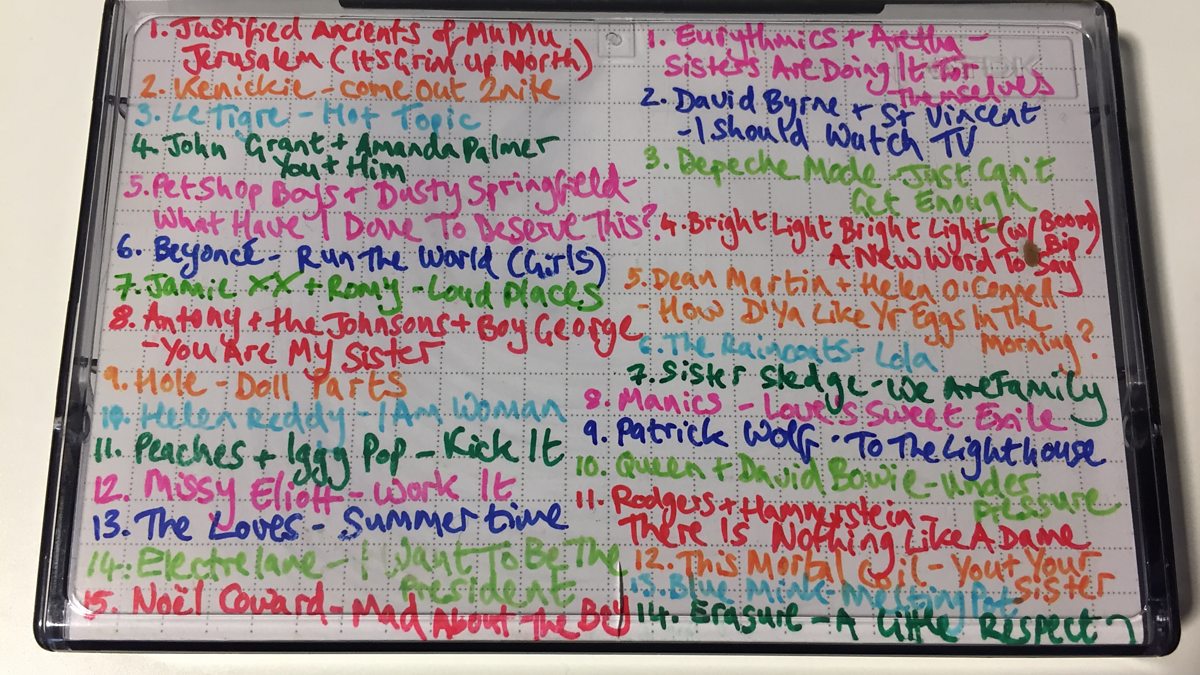 1. Justified Ancients of MuMu
Jerusalem (It's Grim up North)
2. Kenickie - come out 2nite
3. Le Tigre - Hot Topic
4. John Grant + Amanda Palmer
You + Him
5. Pet Shop Boys + Dusty Springfield -
What Have I Done To Deserve This?
6. Beyoncé - Run The World (Girls)
7. Jamie XX + Romy - Loud Places
8. Antony + the Johnsons + Boy George
- You Are My Sister
9. Hole - Doll Parts
10. Helen Reddy - I Am Woman
11. Peaches + Iggy Pop - Kick It
12. Missy Eliott - Work It
13. The Loves - Summertime
14. Electrelane - I Want To Be The
President
15. Noël Coward - Mad About The Boy
1. Eurythmics + Aretha -
Sisters Are Doing It For
Themselves
TDK
2. David Byrne + St Vincent
- I Should Watch TV
3. Depeche Mode - Just Can't
Get Enough
4. Bright Light Bright Light (w/ Boom
Bip)
A New Word To Say
5. Dean Martin + Helen O'Connell
- How D'Ya Like Yr Eggs In The
Morning?
6. The Raincoats - Lola
7. Sister Sledge - We Are Family
8. Manics - Love's Sweet Exile
9. Patrick Wolf - To The Lighthouse
10. Queen + David Bowie - Under
Pressure
11. Rodgers + Hammerstein -
There Is Nothing Like A Dame
12. This Mortal Coil - You + Your
Sister
13. Blue Mink - Melting Pot
14. Erasure - A Little Respect